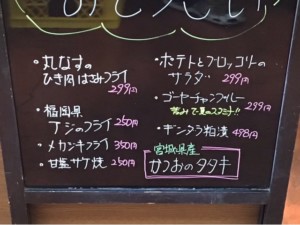 ・丸なすの
ひき肉はさみフライ
299円
・福岡県
アジのフライ 250円
・メカジキフライ 350円
・甘塩サケ焼 250円
・ポテトとブロッコリの
サラダ 299円
・ゴーヤチャンプルー
299円
・ギンダラ粕漬 498円
宮城県産
かつおのタタキ